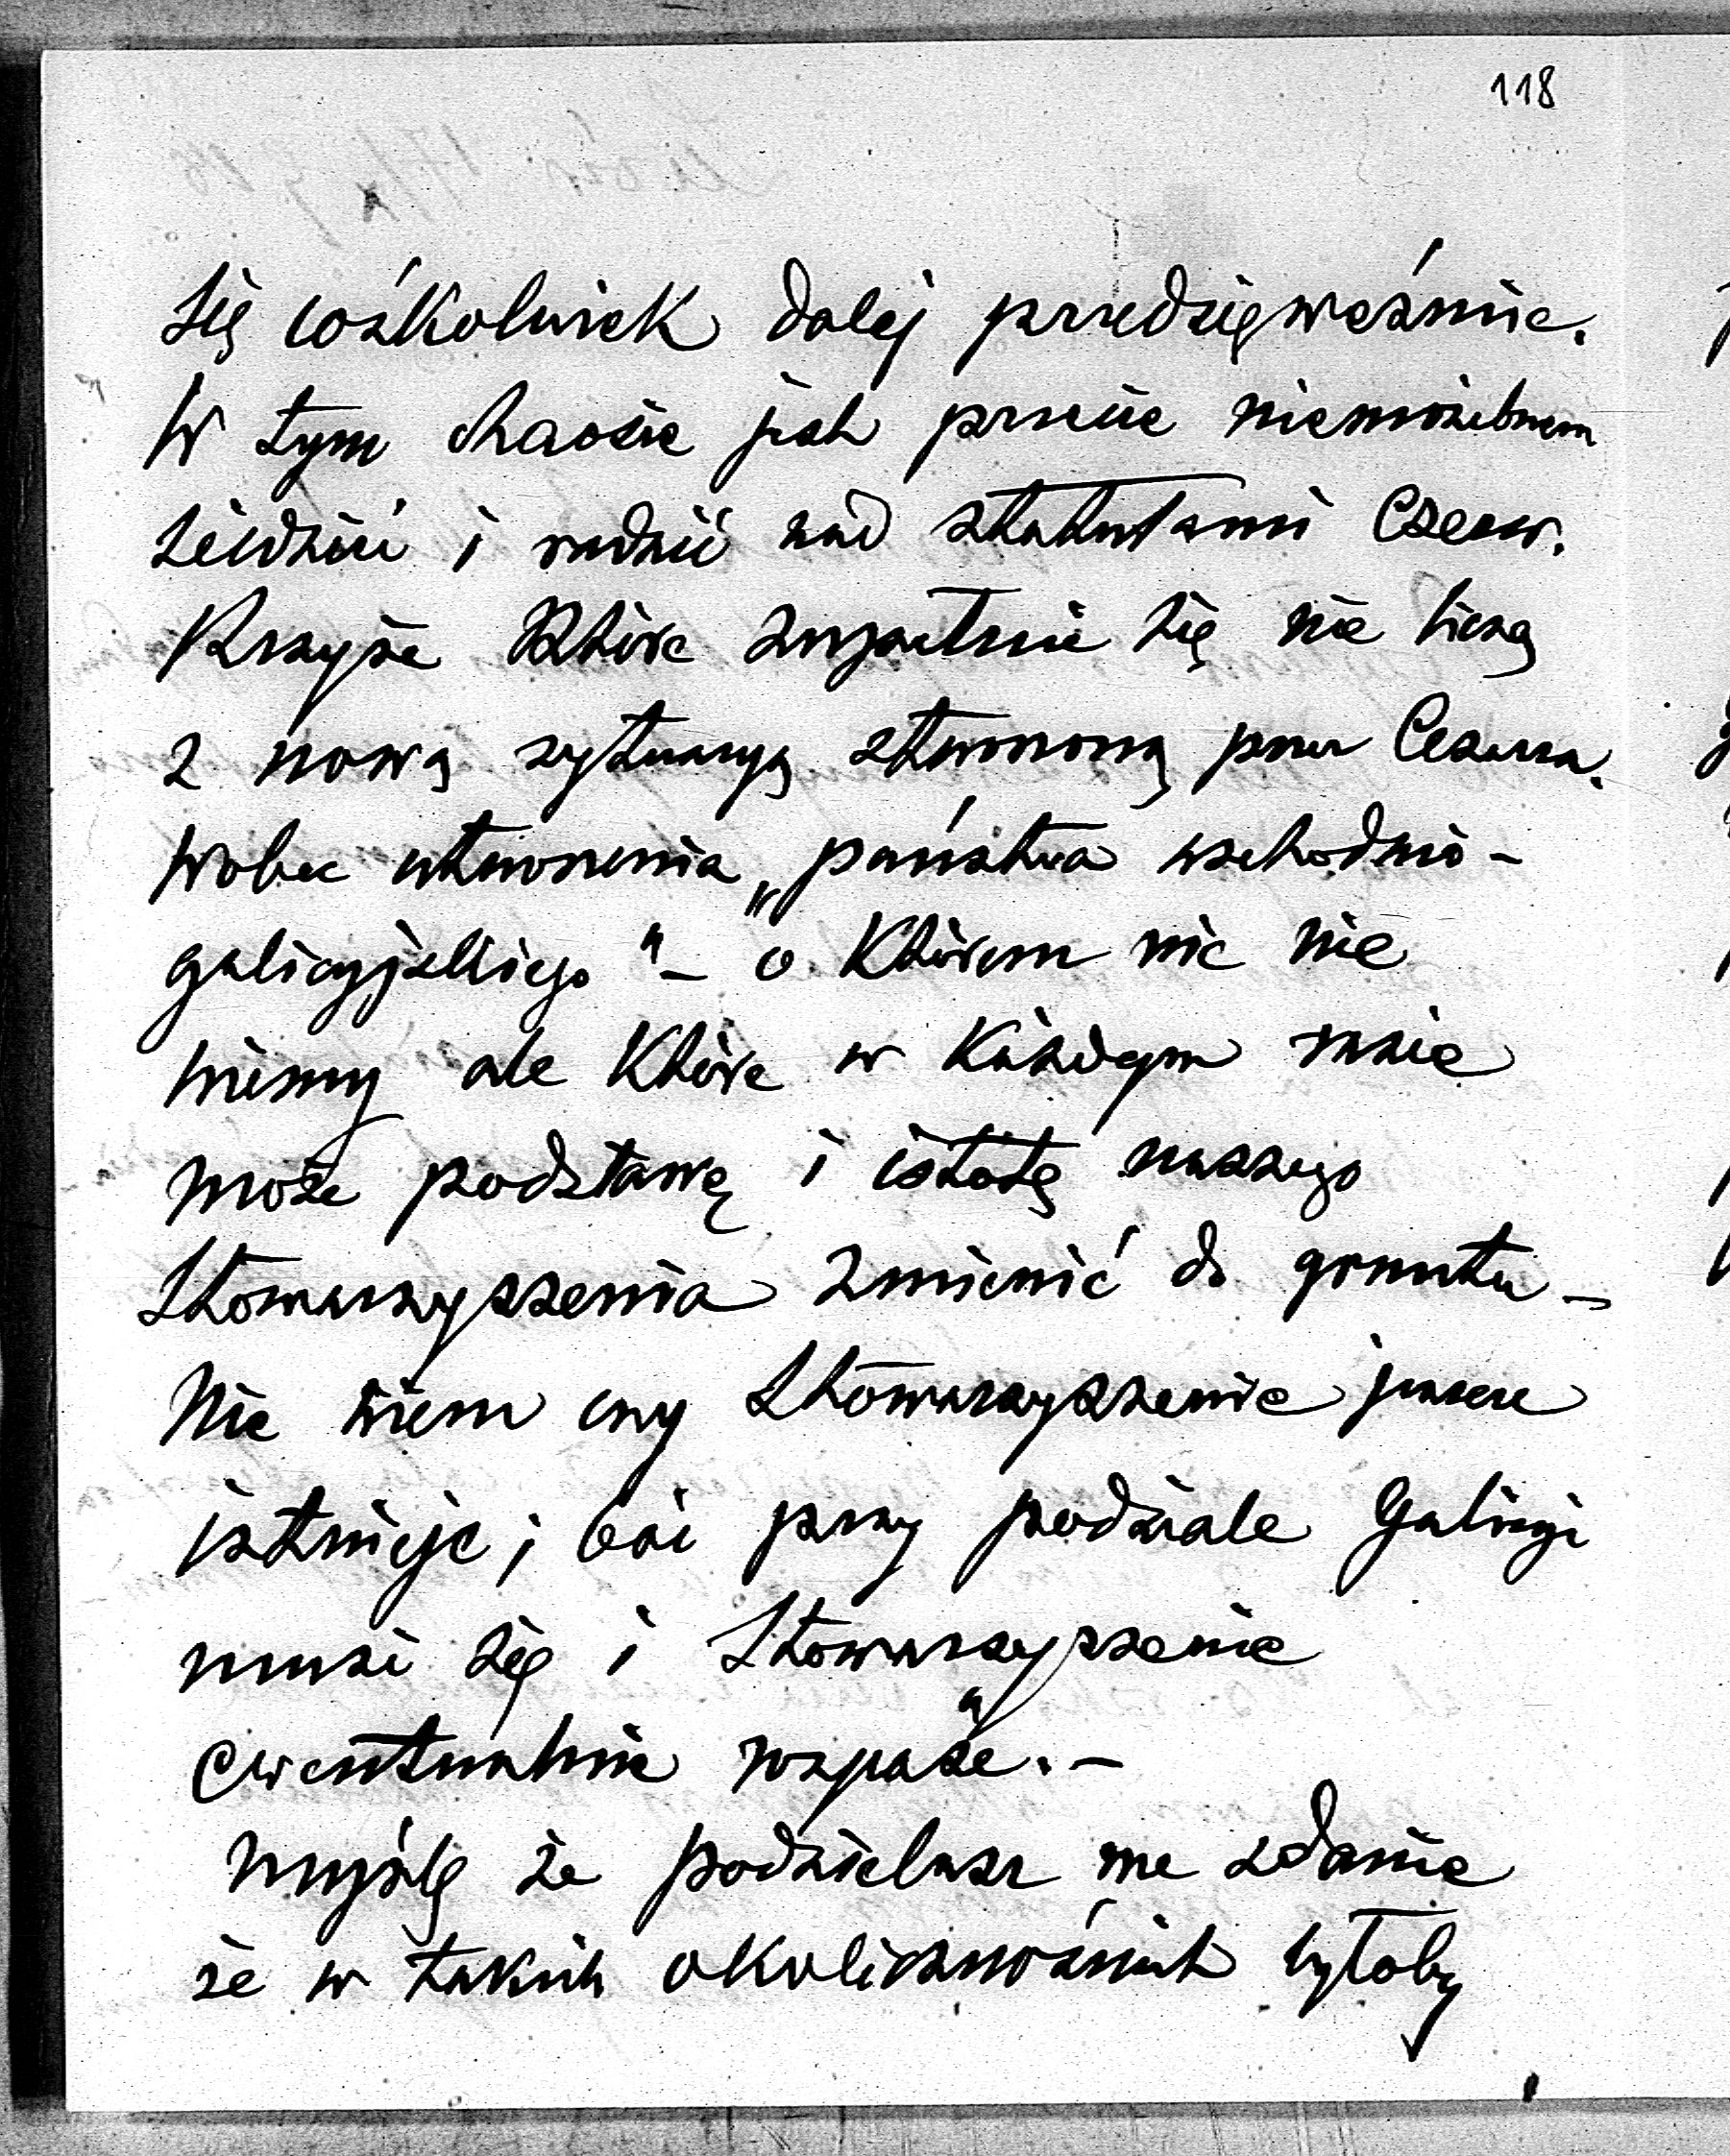 118
się cośkolwiek dalej przedsięweźmie.
W tym chaosie jest przecie niemożebnem
siedzieć i radzić nad statutami Czerw.
Krzyża które zupełnie się nie liczą
z nową sytuacyą stworzoną przez Cesarza.
Wobec utworzenia „państwa wschodnio-
galicyjskiego" – o którem nic nie
wiemy ale które w każdym razie
może podstawę i istotę naszego
Stowarzyszenia zmienić do gruntu –
Nie wiem czy Stowarzyszenie jeszcze
istnieje; boć przy podziale Galicyi
musi się i Stowarzyszenie
ewentualnie rozpaść. –
Myślę że podzielasz me zdanie
że w takich okolicznościach byłoby